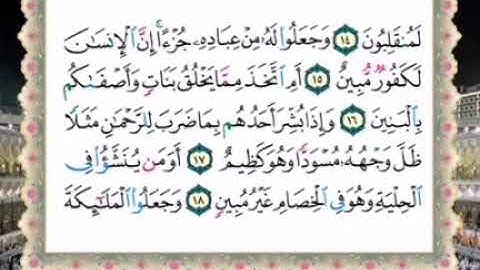 لَمُنقَلِبُونَ ١٤ وَجَعَلُوا۟ لَهُۥ مِنْ عِبَادِهِۦ جُزْءًا ۚ إِنَّ ٱلْإِنسَٰنَ
لَكَفُورٌ مُّبِينٌ ١٥ أَمِ ٱتَّخَذَ مِمَّا يَخْلُقُ بَنَاتٍ وَأَصْفَىٰكُم
بِٱلْبَنِينَ ١٦ وَإِذَا بُشِّرَ أَحَدُهُم بِمَا ضَرَبَ لِلرَّحْمَٰنِ مَثَلًا
ظَلَّ وَجْهُهُۥ مُسْوَدًّا وَهُوَ كَظِيمٌ ١٧ أَوَمَن يُنَشَّؤُا۟ فِى
ٱلْحِلْيَةِ وَهُوَ فِى ٱلْخِصَامِ غَيْرُ مُبِينٍ ١٨ وَجَعَلُوا۟ ٱلْمَلَٰٓئِكَةَ